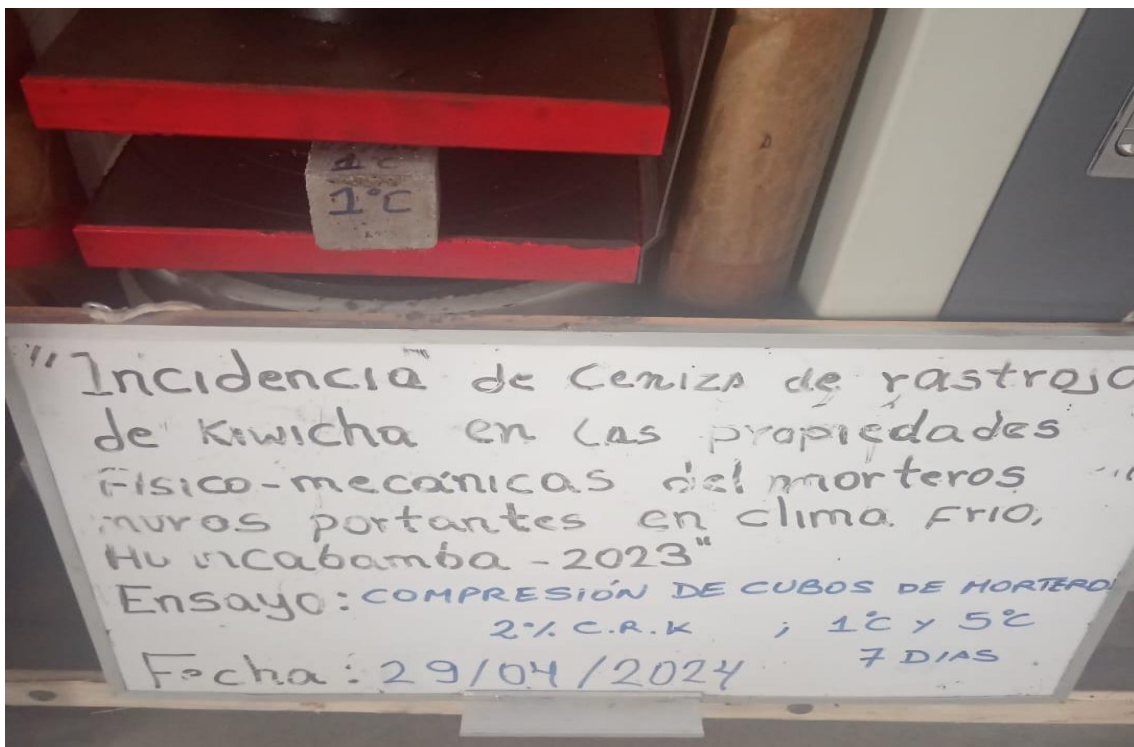 1°C
1°C
"Incidencia" de Ceniza de rastrojo
de Kiwicha en las propiedades
Físico-mecánicas del morteros
muros portantes en clima Frio,
Huancabamba - 2023"
Ensayo: COMPRESIÓN DE CUBOS DE MORTERO
2% C.R.K ; 1°C y 5°C
7 DIAS
Fecha: 29/04/2024